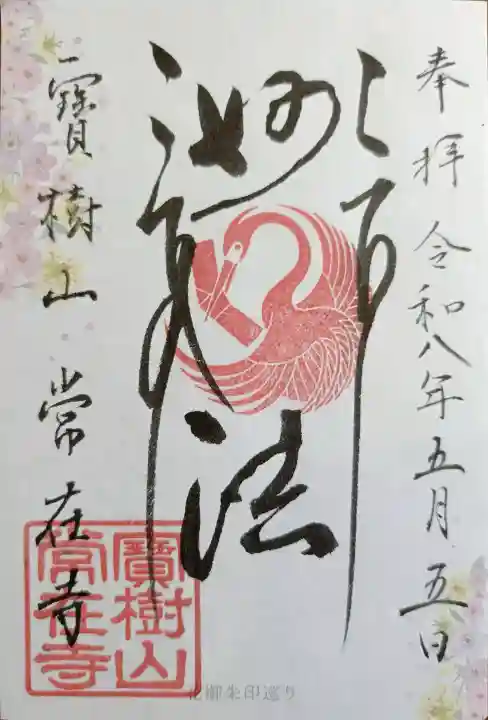 奉拝 令和八年五月五日
妙法
寶樹山 常在寺
寶樹山
常在寺
花御朱印巡り